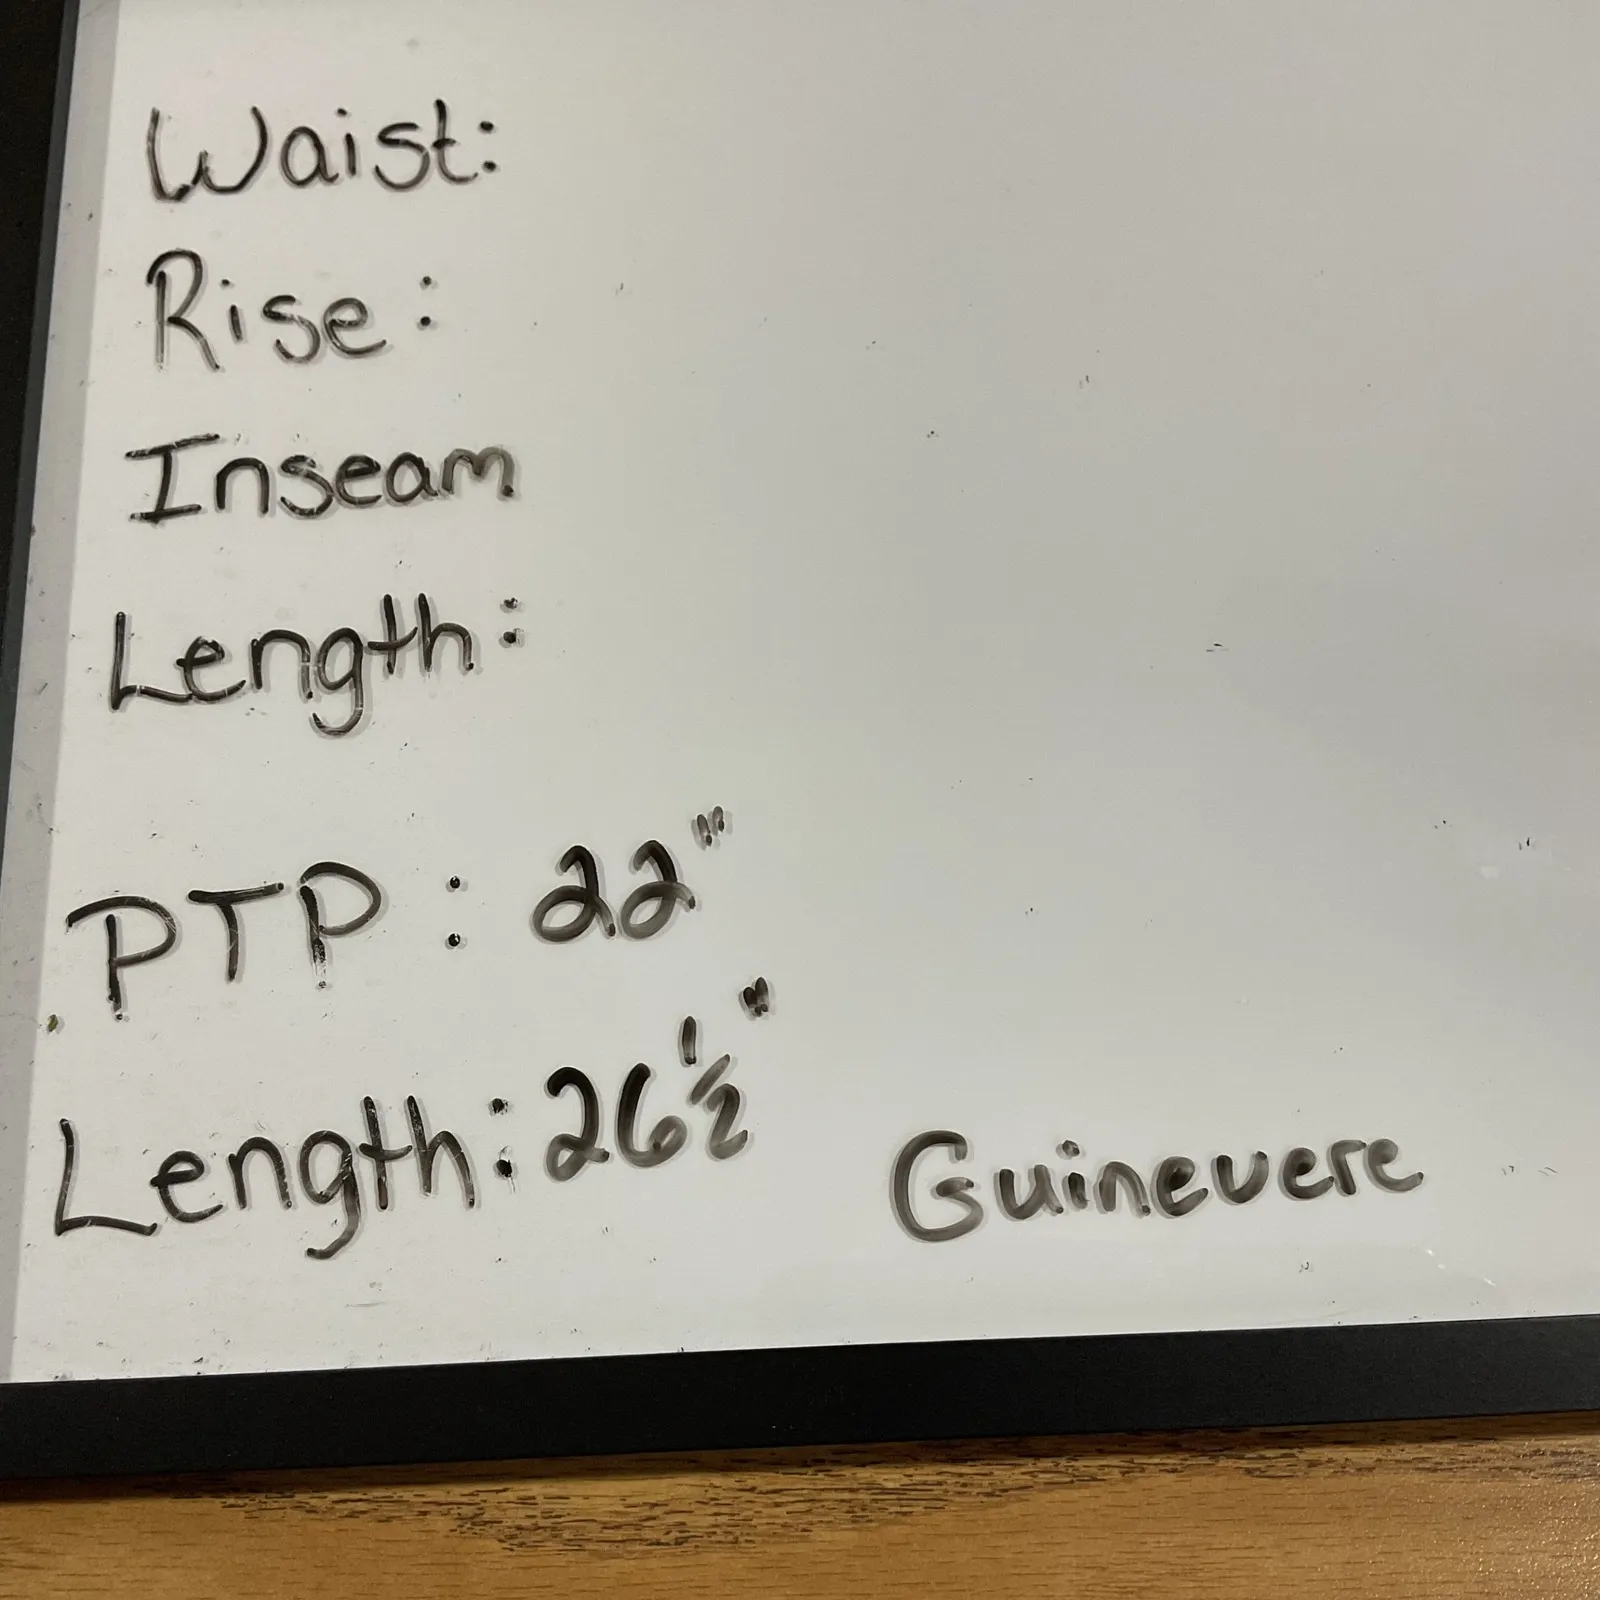 Waist:
Rise:
Inseam
Length:
PTP: 22"
Length: 26 1/2"
Guinevere